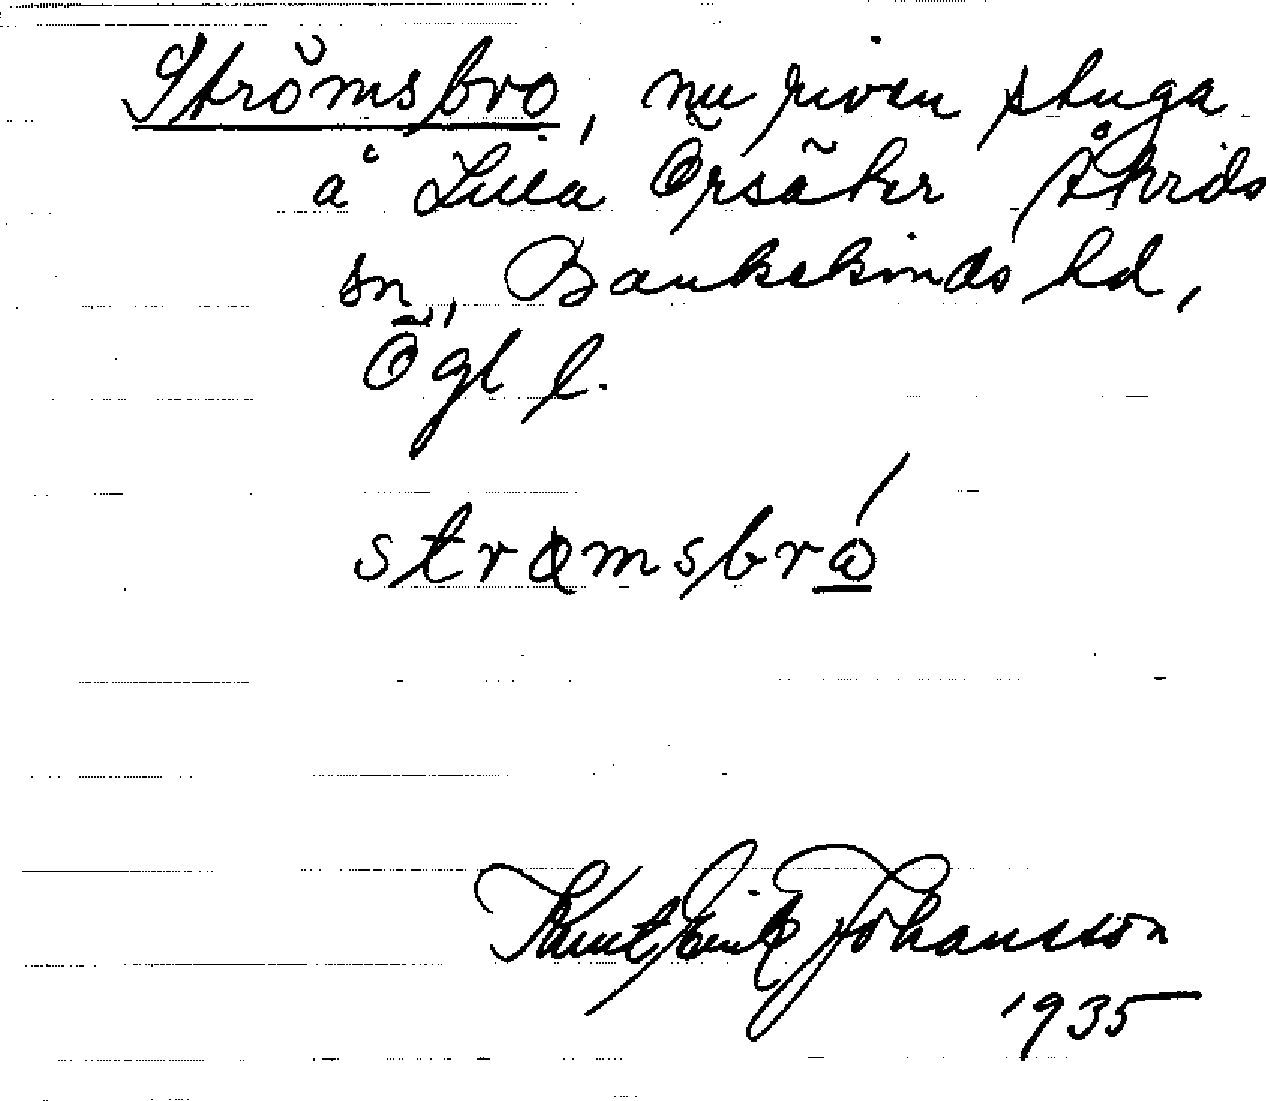 Strömsbro, nu riven stuga
å Lilla Örsäter Åtvids
sn, Bankekinds hd,
Ögl l.
strømsbrώ
Knut Erik Johansson
1935